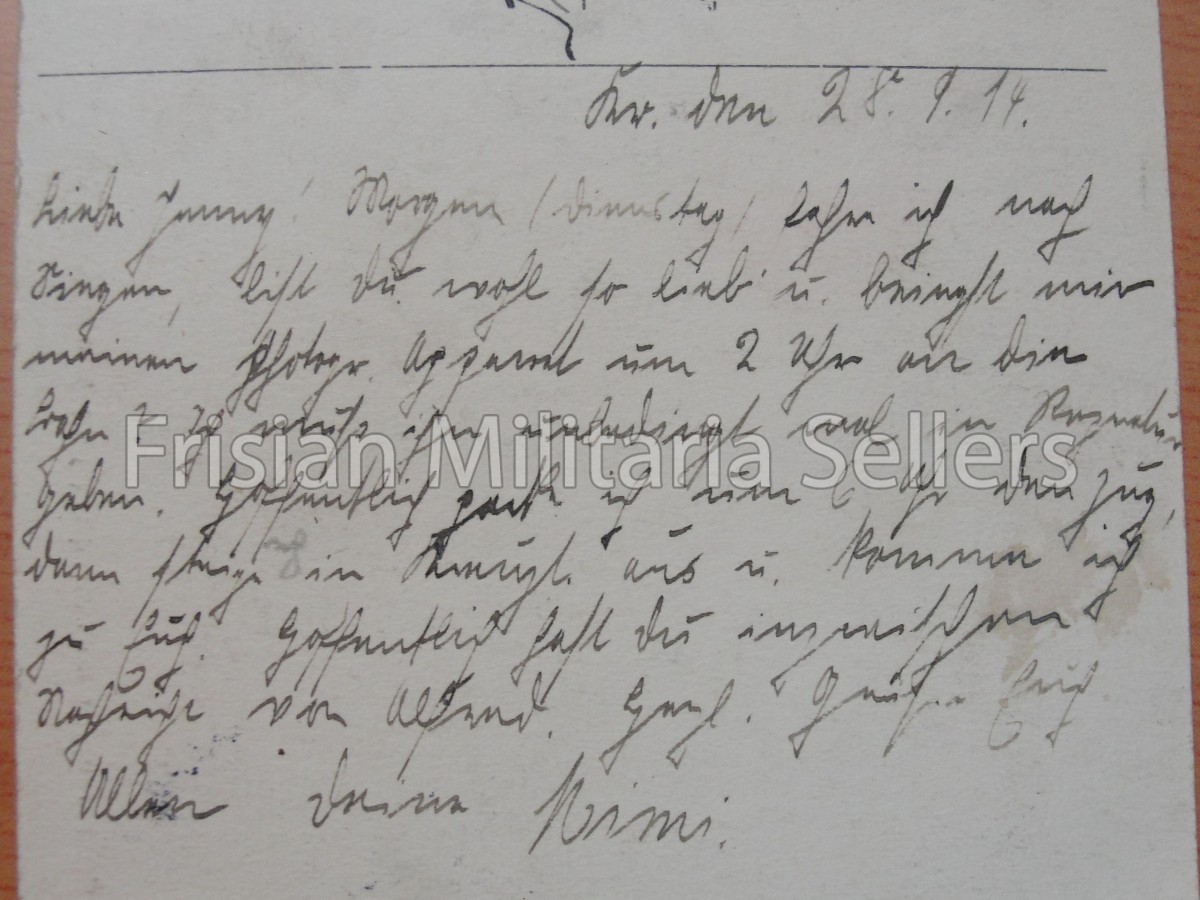 Kr. den 28. 9. 14.
Liebe Jenny! Morgen (Dienstag) fahre ich nach
Singen, bist du wohl so lieb u. bringst mir
meinen Photogr. Apparat um 2 Uhr an die
Bahn? Ich muß ihn unbedingt mal in Reparatur
geben. Hoffentlich packe ich um 6 Uhr den Zug,
dann steige in Kreuzl. aus u. komme ich
zu Euch. Hoffentlich hast du inzwischen
Nachricht von Alfred. Herzl. Grüße Euch
Allen deine Mimi.
Frisian Militaria Sellers